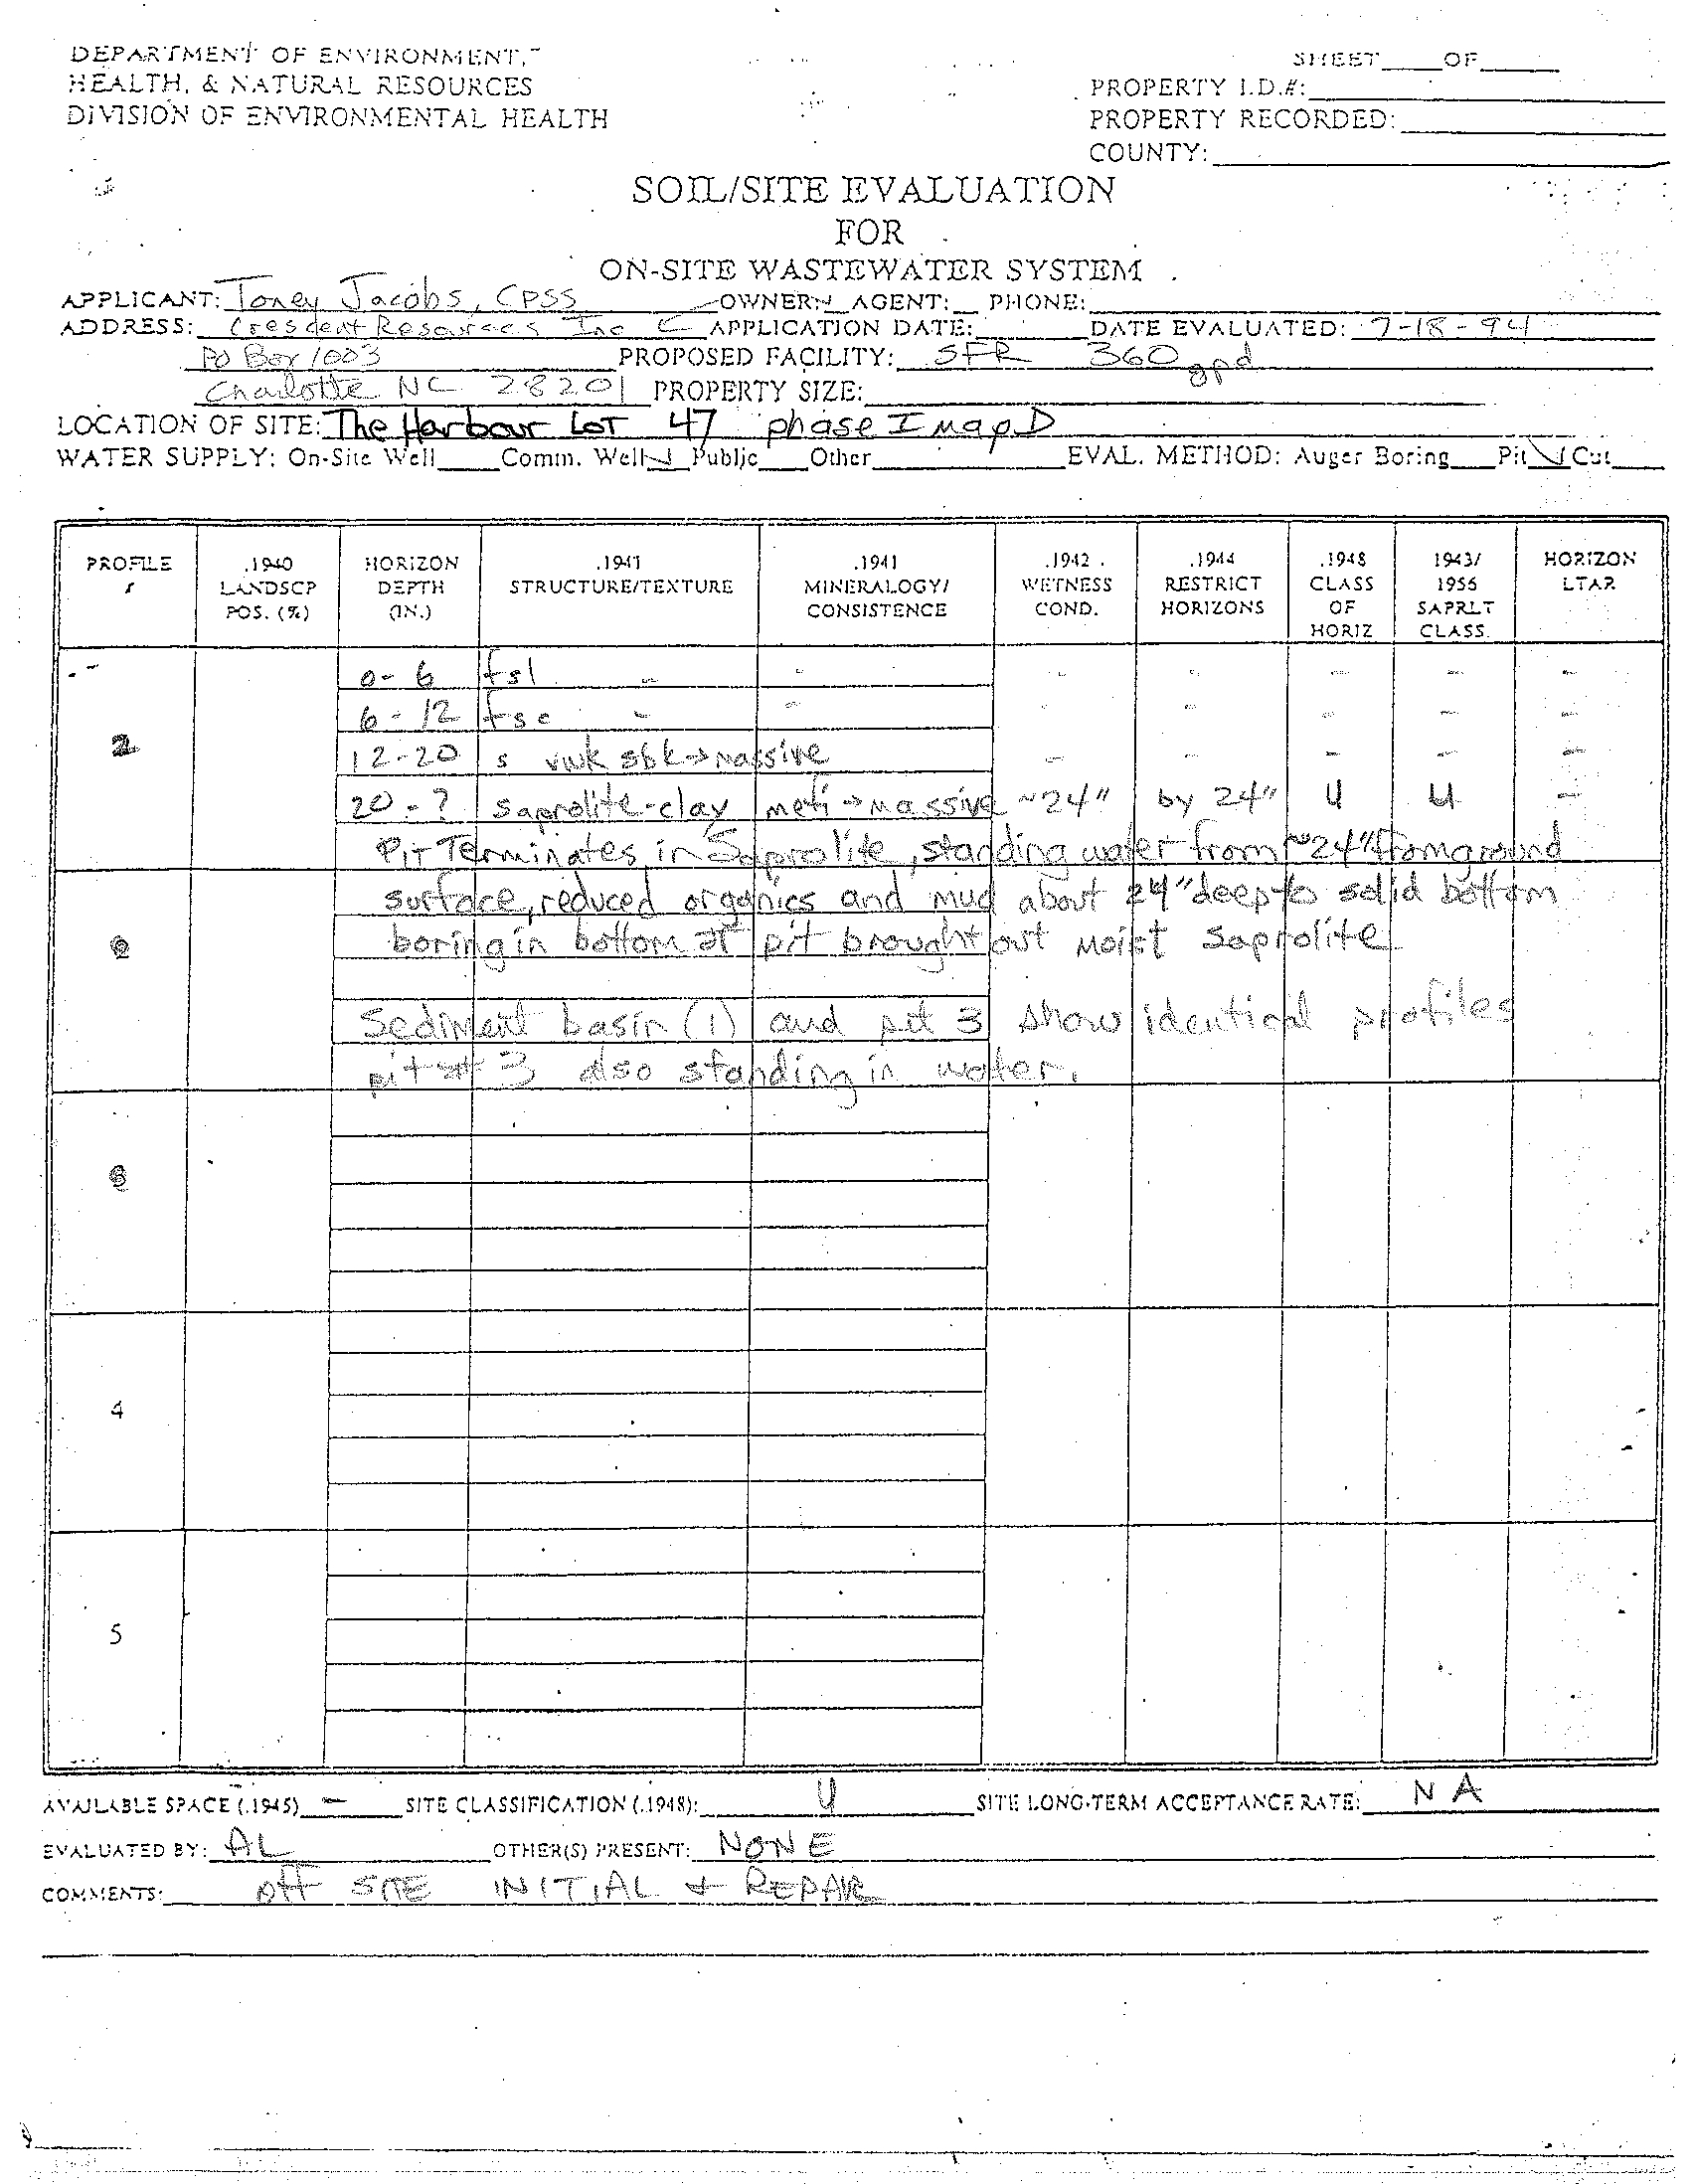 DEPARTMENT OF ENVIRONMENT,
HEALTH, & NATURAL RESOURCES
DIVISION OF ENVIRONMENTAL HEALTH
SHEET____OF____
PROPERTY I.D.#:
PROPERTY RECORDED:
COUNTY:
SOIL/SITE EVALUATION
FOR
ON-SITE WASTEWATER SYSTEM
APPLICANT: Toney Jacobs, CPSS OWNER: AGENT: PHONE:
ADDRESS: Crescent Resources Inc APPLICATION DATE: DATE EVALUATED: 7-18-94
PO Box 1003 PROPOSED FACILITY: SFR 360 gpd
Charlotte NC 28201 PROPERTY SIZE:
LOCATION OF SITE: The Harbour LOT 47 phase I map D
WATER SUPPLY: On-Site Well____Comm. Well √ Public____Other____ EVAL. METHOD: Auger Boring____Pit √ Cut____
PROFILE # .1940 LANDSCP POS. (%) HORIZON DEPTH (IN.) .1941 STRUCTURE/TEXTURE .1941 MINERALOGY/ CONSISTENCE .1942 WETNESS COND. .1944 RESTRICT HORIZONS .1948 CLASS OF HORIZ 1943/ 1956 SAPRLT CLASS. HORIZON LTAR
0-6 fsl - - - - - - -
6-12 fsc - - - - - - -
2
12-20 s vwk sbk→massive - - - - -
20-? saprolite-clay massive ~24" by 24" U U -
Pit Terminates in Saprolite, standing water from ~24" from ground
surface, reduced organics and mud about 24" deep to solid bottom
boring in bottom of pit brought out moist saprolite
Sediment basin (1) and pit 3 show identical profiles
pit # 3 also standing in water.
4
5
AVAILABLE SPACE (.1945) - SITE CLASSIFICATION (.1948): U SITE LONG-TERM ACCEPTANCE RATE: NA
EVALUATED BY: AL OTHER(S) PRESENT: NONE
COMMENTS: Off SITE INITIAL + REPAIR